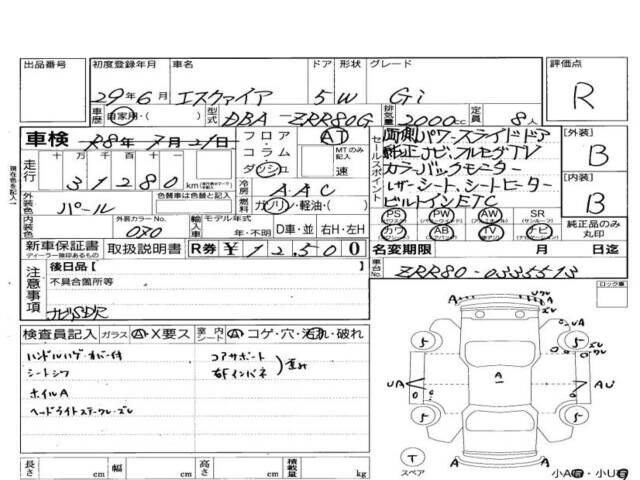 出品番号 初度登録年月 車名 ドア 形状 グレード 評価点
29年6月 エスクァイア 5 W Gi R
車歴 自家用・( ) 型式 DBA-ZRR80G 排気量 2000cc 定員 8人
車検 R8年7月21日 フロア コラム ダッシュ AT MTのみ記入 速
走行 十万 万 千 百 十 一
31280 km
冷房 AAC
外装色 パール 色替車は色替と記入
燃料 ガソリン・軽油・( )
内装色 外装カラーNo. 070 輸入車 モデル年式 年・不明 D車・並 右H・左H
セールスポイント
両側パワースライドドア
純正ナビ、フルセグTV
カラーバックモニター
レザーシート、シートヒーター
ビルトインETC
[外装] B
[内装] B
PS PW AW SR
カワ AB TV ナビ
純正品のみ丸印
新車保証書 取扱説明書 R券 ¥12,500
ディーラー捺印あるもの
名変期限 月 日迄
車台No. ZRR80-0335513
注意事項
後日品 [ ]
不具合箇所等
ナビSDR
ロック車
検査員記入 ガラス A・X要ス 室内シート A・コゲ・穴・汚れ・破れ
ハンドルハゲ・カバー付
シートシワ
ホイルA
ヘッドライトステークレーズレ
コアサポート
右Fインパネ
歪み
UA
5 5
UA A AU
5 5
A A
T
スペア
小A・小U
長さ cm 幅 cm 高さ cm 積載量 kg